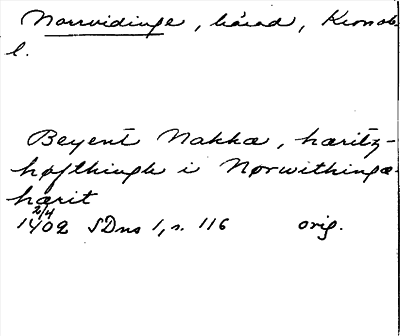 Norrvidinge, härad, Kronob.
l.
Beyent Nakka, hæritz-
høfthingh i Nørwithinga-
hærit
2/4
1402 SDns 1, s. 116 orig.